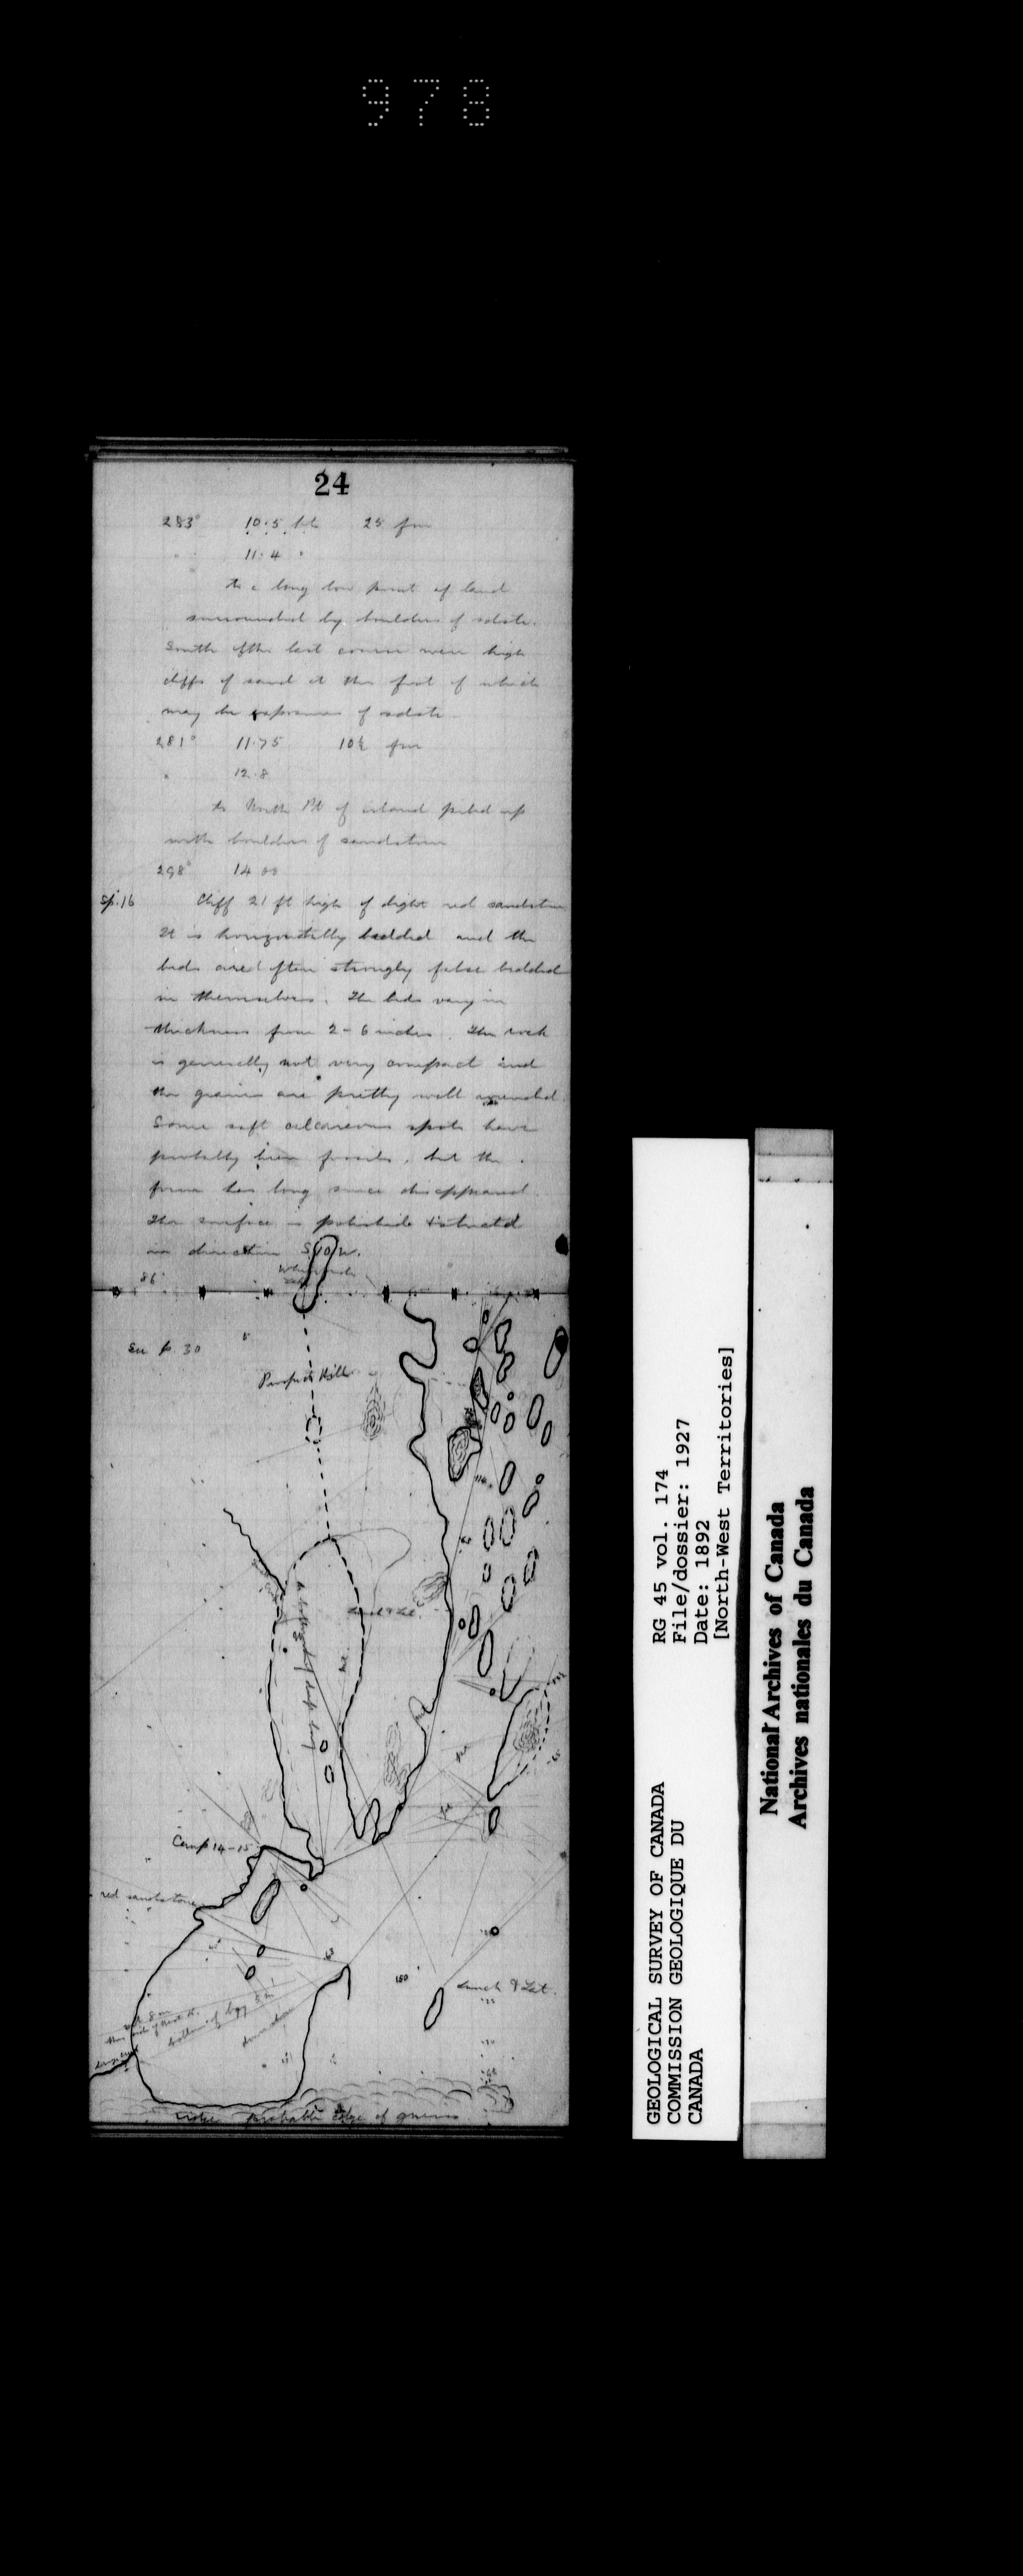 978
24
283° 10.5 25 fm
" 11.4 "
to a long low point of land
surrounded by boulders of sdste.
South of the last course were high
cliffs of sand at the foot of which
may be exposures of sdste
281° 11.75 10½ fm
" 12.8
to North Pt of island piled up
with boulders of sandstone
298° 14.00
Sp. 16 Cliff 21 ft high of light red sandstone
It is horizontally bedded and the
beds are often strongly false bedded
in themselves. The beds vary in
thickness from 2-6 inches. The rock
is generally not very compact and
the grains are pretty well rounded.
Some soft calcareous spots have
probably been fossils, but the
form has long since disappeared.
The surface is polished & striated
in direction S 10 W.
86
See p. 30
Prospect Hill
Camp 14-15
red sandstone
180
Lunch & Lat.
bottom of bay 5 m
probable edge of gneiss
GEOLOGICAL SURVEY OF CANADA
COMMISSION GEOLOGIQUE DU
CANADA
RG 45 vol. 174
File/dossier: 1927
Date: 1892
[North-West Territories]
National Archives of Canada
Archives nationales du Canada